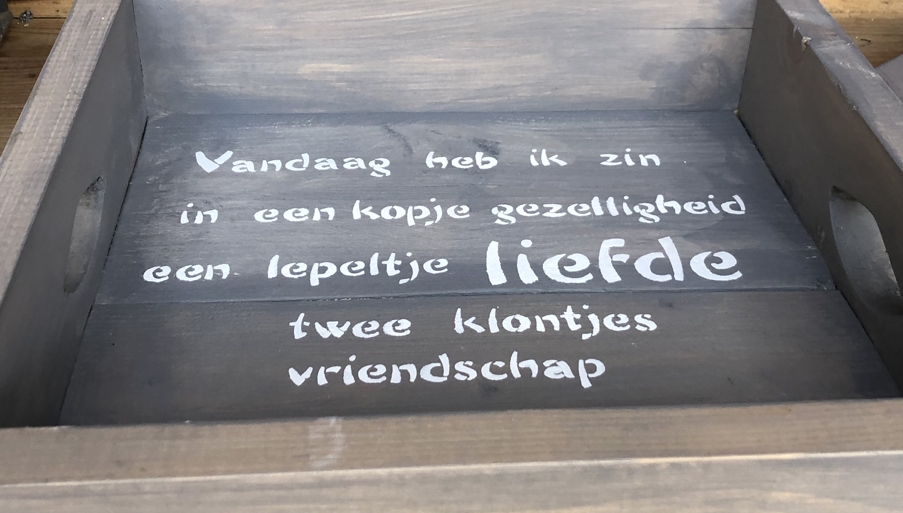 Vandaag heb ik zin
in een kopje gezelligheid
een lepeltje liefde
twee klontjes
vriendschap